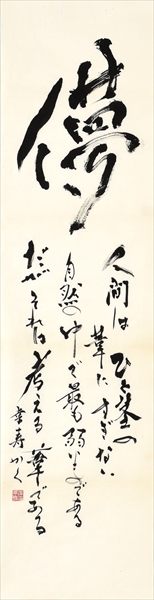 儚
人間は ひと茎の
葦にすぎない
自然の中で最も弱いものである
だがそれは
考える葦である